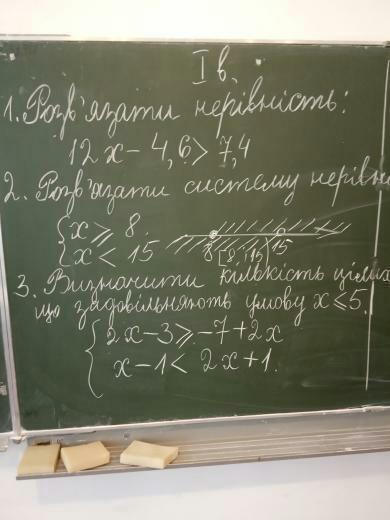 I в.
1. Розв'язати нерівність:
12x - 4,6 > 7,4
2. Розв'язати систему нерівн
{ x ⩾ 8
x < 15
8 [8; 15) 15
3. Визначити кількість цілих
що задовільняють умову x ⩽ 5.
{ 2x - 3 ⩾ -7 + 2x
x - 1 < 2x + 1.